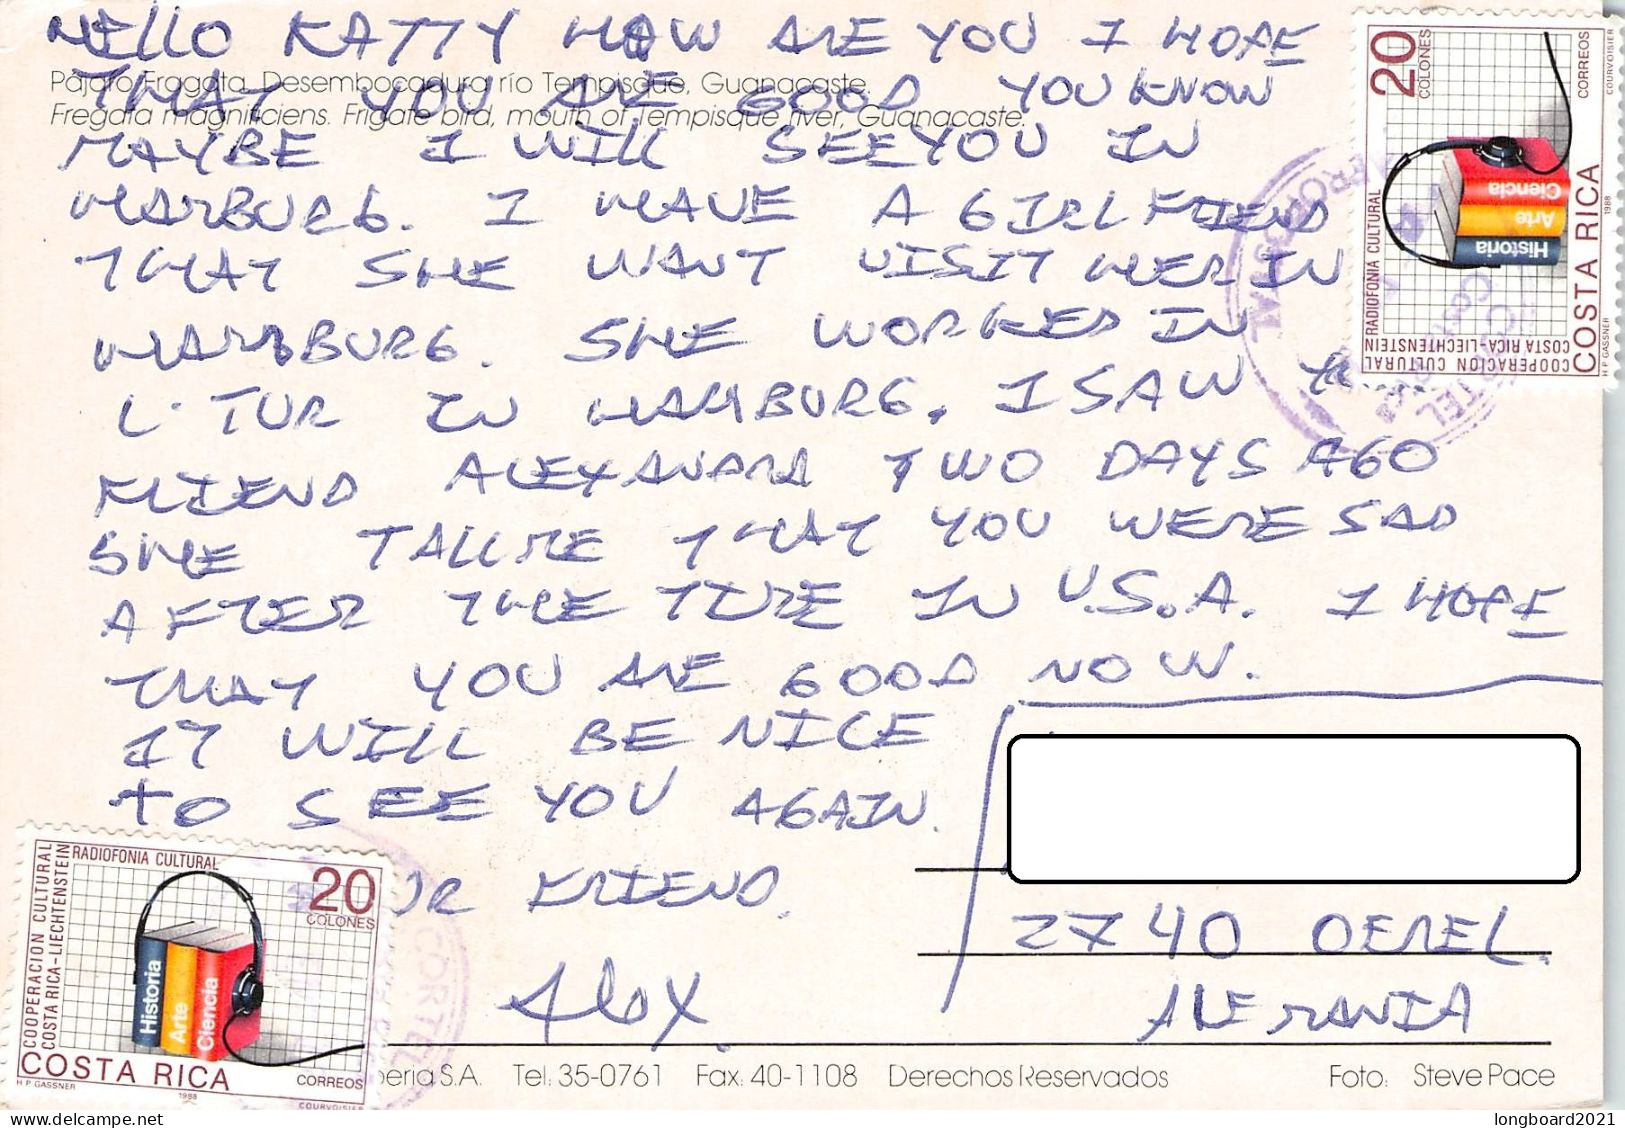 HELLO KATTY HOW ARE YOU I HOPE
Pájaro Fragata. Desembocadura río Tempisque, Guanacaste.
THAT YOU ARE GOOD YOU KNOW
Fregata magnificiens. Frigate bird, mouth of Tempisque river, Guanacaste.
MAYBE I WILL SEE YOU IN
HAMBURG. I HAVE A GIRLFRIEND
THAT SHE WANT VISIT HER IN
HAMBURG. SHE WORKED IN
L·TUR IN HAMBURG. I SAW
FRIEND ALEXANDRA TWO DAYS AGO
SHE TALK ME THAT YOU WERE SAD
AFTER THE TIME IN U.S.A. I HOPE
THAT YOU ARE GOOD NOW.
IT WILL BE NICE
TO SEE YOU AGAIN.
FRIEND.
Alex.
2740 OEREL.
ALEMANIA
S.A. Tel: 35-0761 Fax: 40-1108 Derechos Reservados Foto: Steve Pace
20
COLONES
CORREOS
COURVOISIER
RADIOFONIA CULTURAL
COOPERACION CULTURAL
COSTA RICA-LIECHTENSTEIN
Historia
Arte
Ciencia
COSTA RICA
1988
H P GASSNER
RADIOFONIA CULTURAL
20
COLONES
COOPERACION CULTURAL
COSTA RICA-LIECHTENSTEIN
Historia
Arte
Ciencia
COSTA RICA
CORREOS
H P GASSNER
1988
COURVOISIER
CORTEL
longboard2021